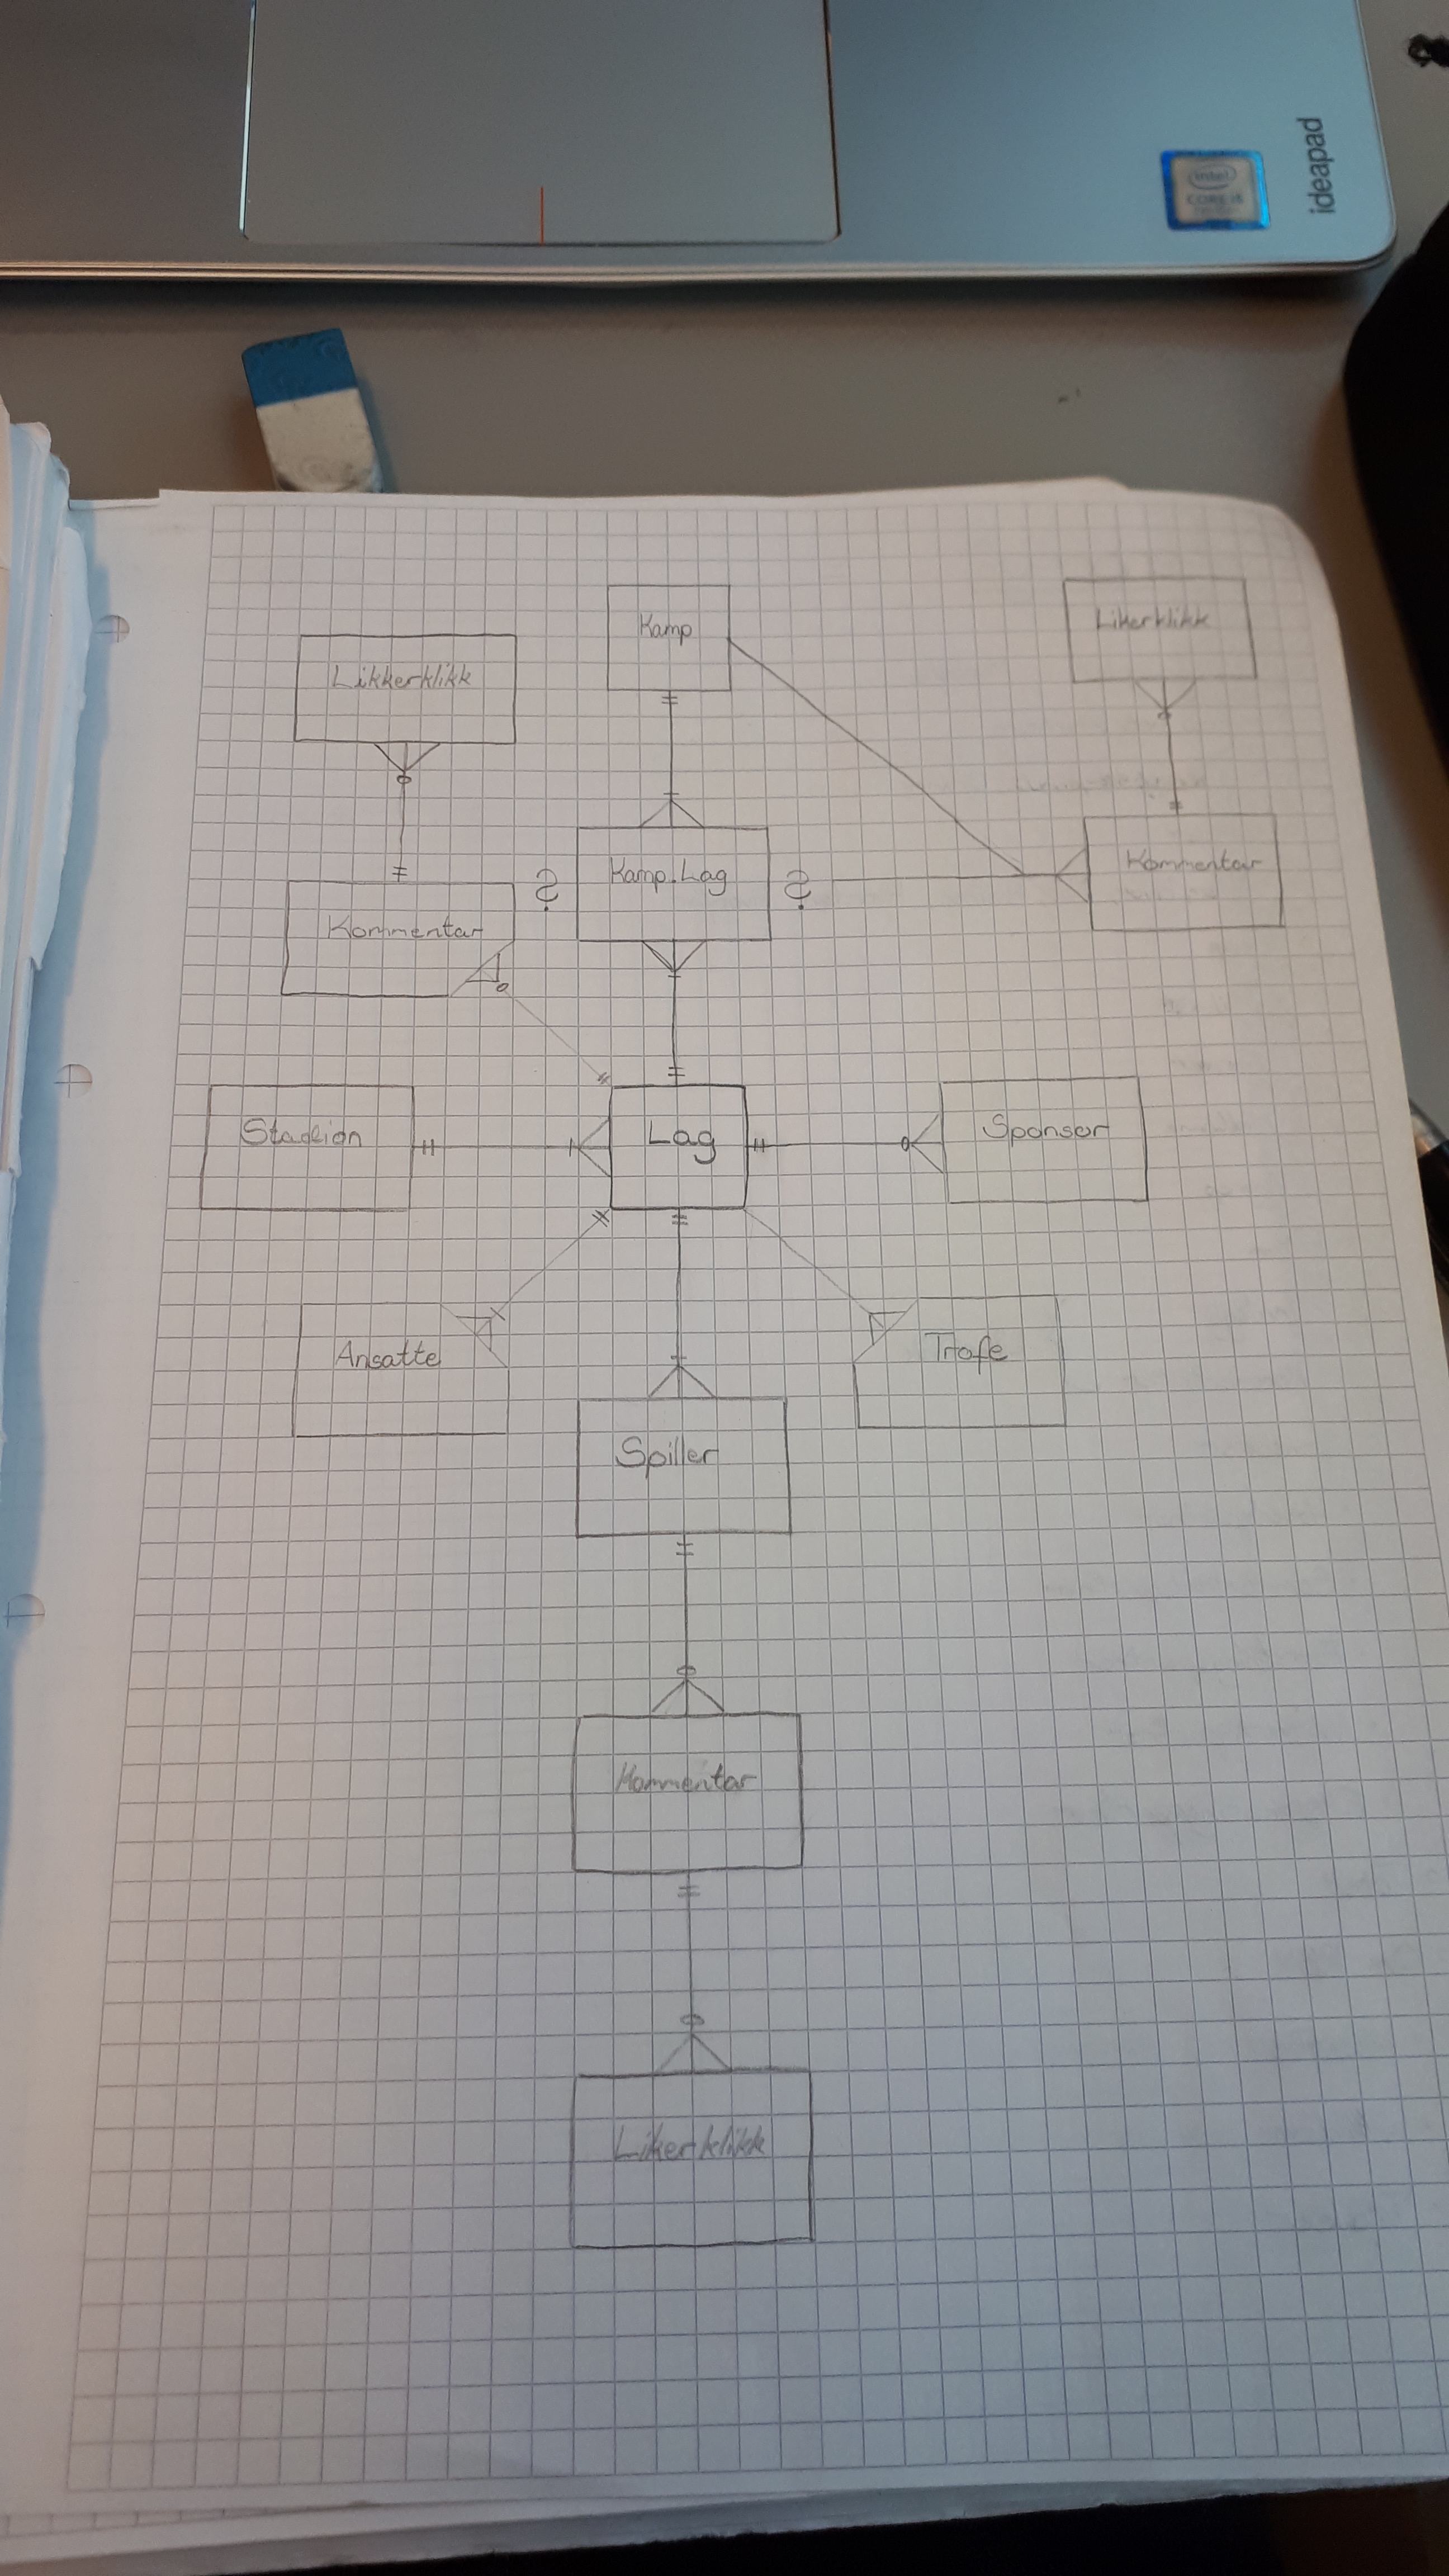 ideapad
intel
CORE i5
Kamp
Likerklikk
Likkerklikk
Kamp.Lag
Kommentar
Kommentar
?
?
Stadion
Lag
Sponsor
Ansatte
Trofe
Spiller
Kommentar
Likerklikk